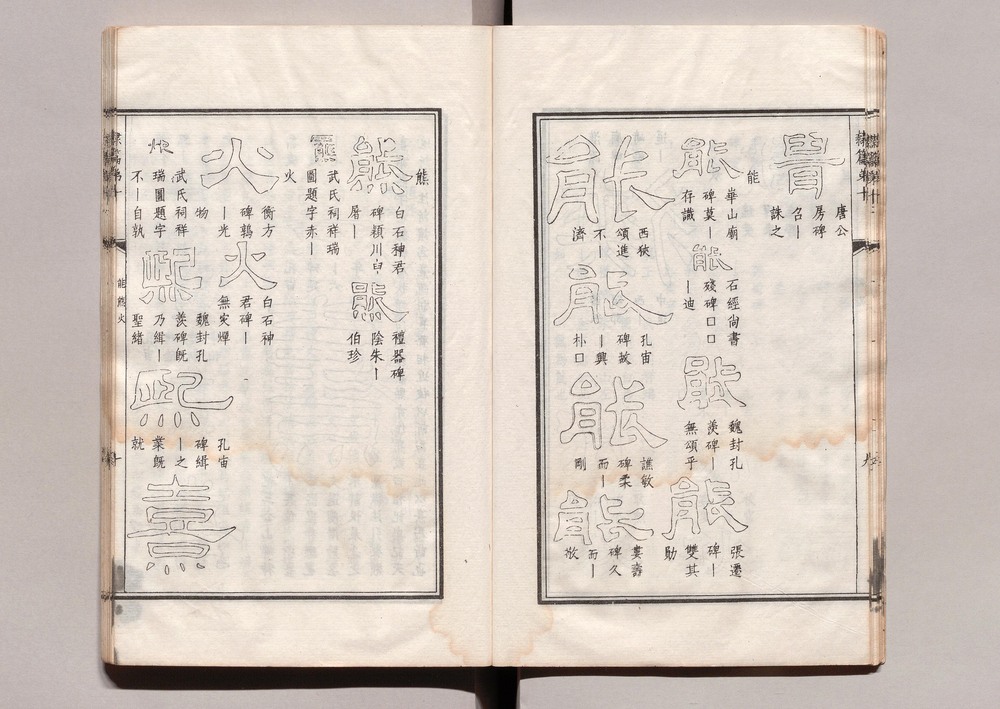 隸篇第十
唐公
房碑
召｜
誅之
能
能
華山廟
碑莫｜
存識
能
石經尚書
殘碑口口
｜迪
能
魏封孔
羨碑｜
無頌乎
能
張遷
碑｜
雙其
勛
能
西狹
頌進
不｜
濟
能
孔宙
碑故
｜興
朴口
能
譙敏
碑柔
而｜
剛
能
婁壽
碑久
而｜
熊
熊
白石神君
碑潁川申
屠｜
熊
禮器碑
陰朱｜
伯珍
熊
武氏祠祥瑞
圖題字赤｜
火
火
衡方
碑鶉
｜光
物
火
白石神
君碑｜
無灾燀
火
武氏祠祥
瑞圖題字
不｜自孰
熙
魏封孔
羨碑既
乃緝｜
聖緒
熙
孔宙
碑緝
｜之
業既
就
熹
隸篇第十
能熊火